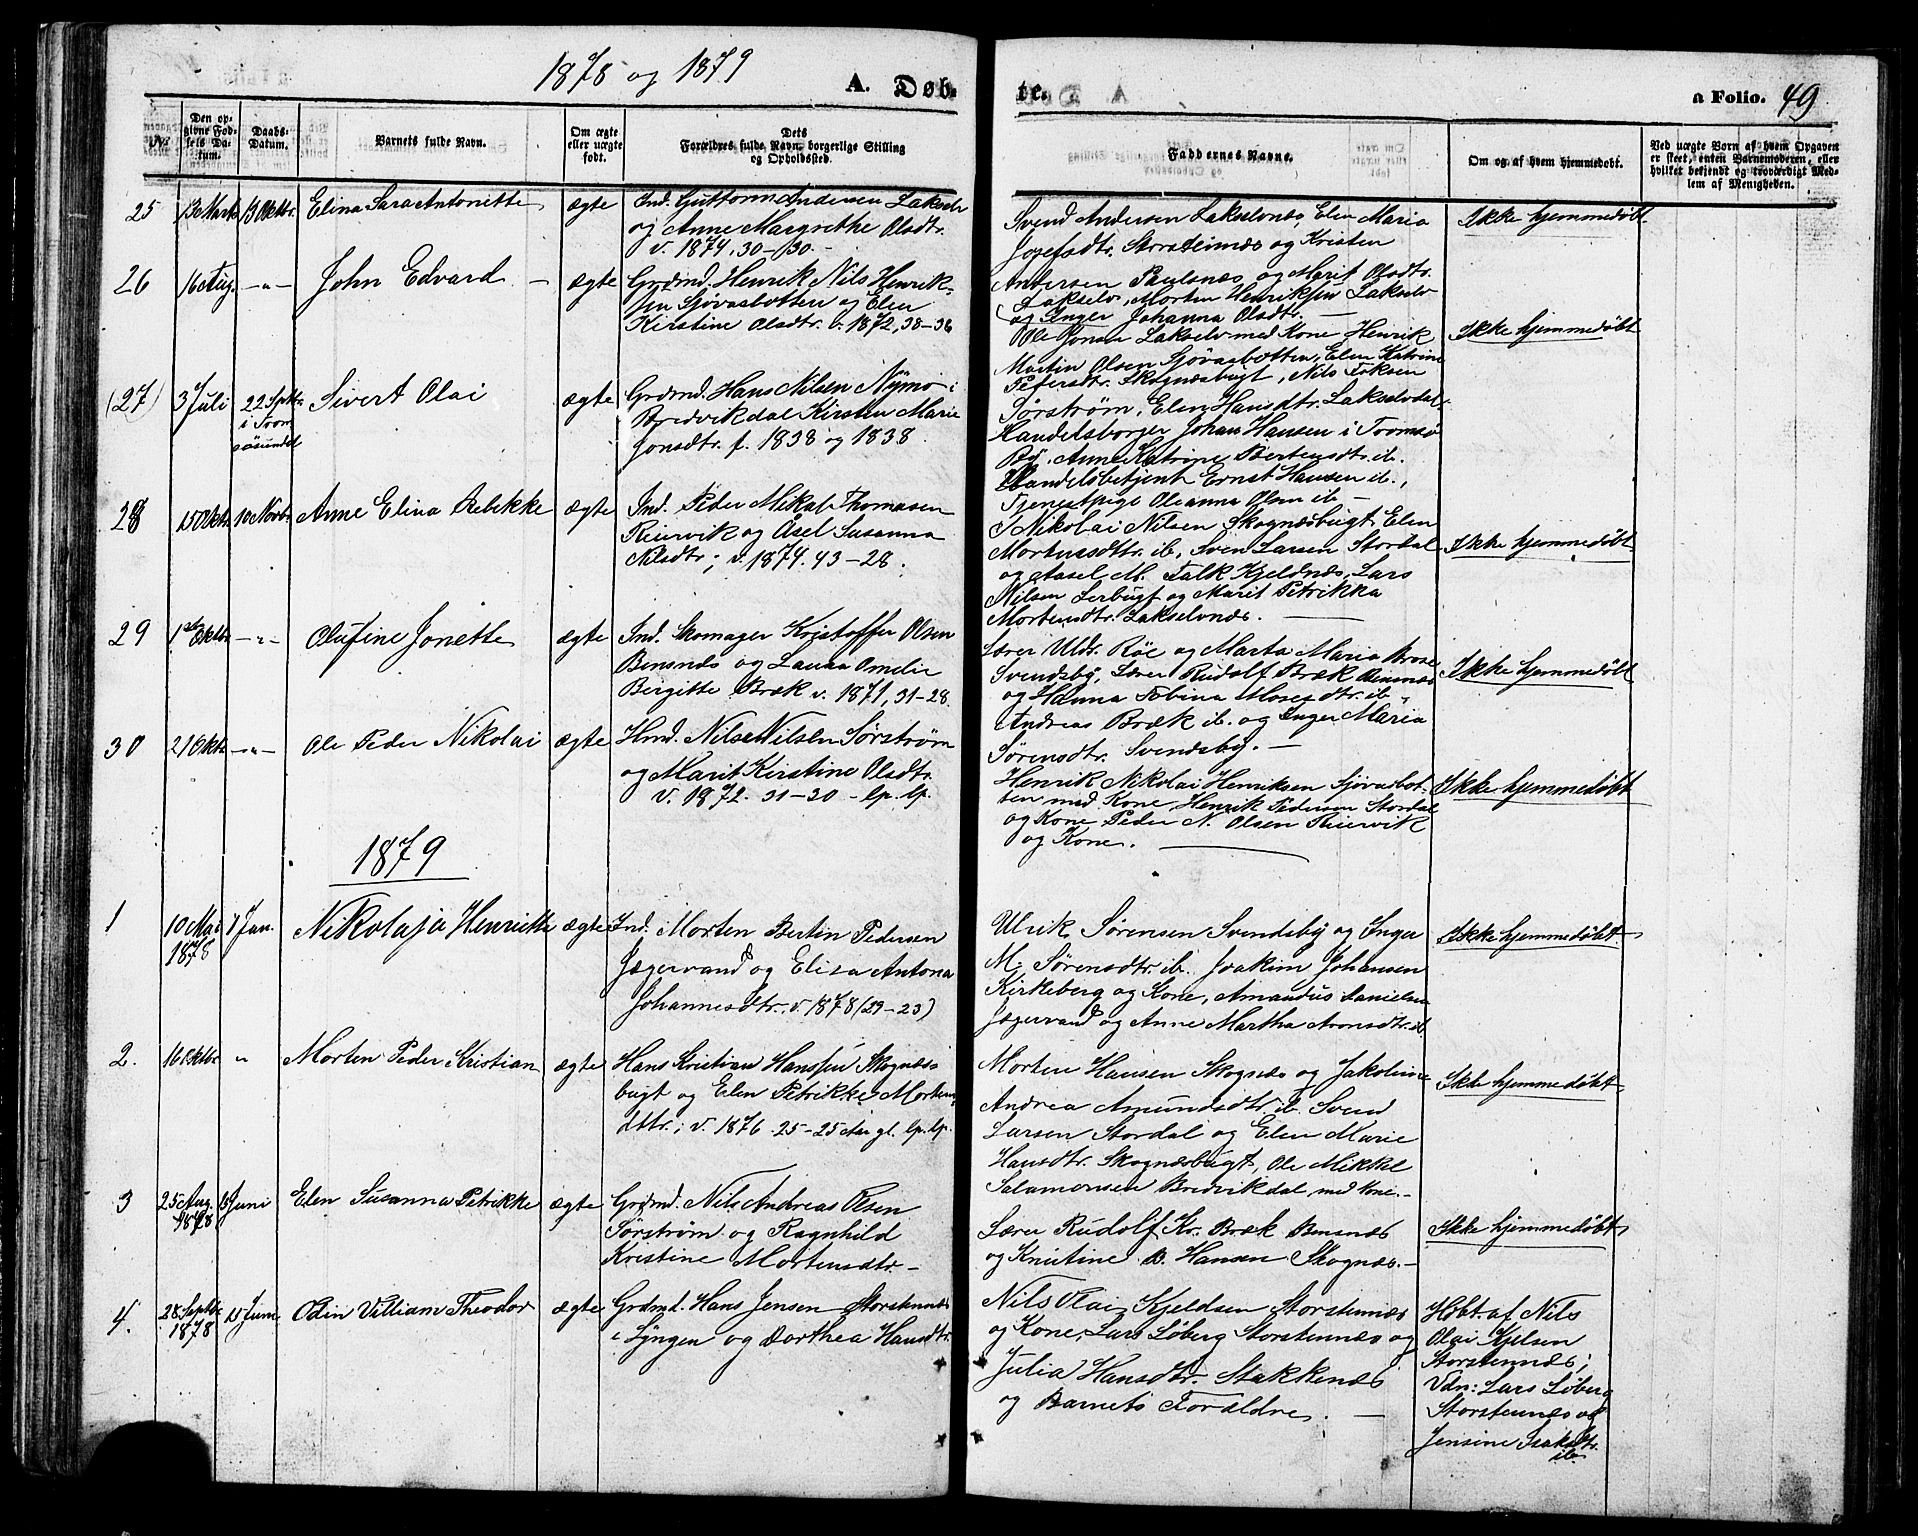 1878 og 1879
A. Døb-
te.
a Folio. 49
No
Den op-
givne Fød-
sels Da-
tum.
Daabs-
Datum.
Barnets fulde Navn.
Om ægte
eller uægte
født.
Dets
Forældres fulde Navn, borgerlige Stilling
og Opholdssted.
Faddernes Navne.
Om og af hvem hjemmedøbt.
Ved uægte Børn af hvem Opgaven
er skeet, enten Barnemoderen, eller
hvilket bekjendt og troværdigt Med-
lem af Menigheden.
25 13 Marts 13 Oktbr. Elina Sara Antonette ægte Ind. Guttorm Andersen Lakselv
og Anne Margrethe Olsdtr.
v. 1874, 30-30.-
Svend Andersen Lakselvnæs, Elen Maria
Josefsdtr. Storsteinnæs og Kristen
Andersen Paulsnæs og Marit Olsdtr.
Lakselv, Morten Henriksen Lakselv
og Inger Johanna Olsdtr. —
Ikke hjemmedøbt
26 16 Aug. -"- John Edvard - ægte Grdmd. Henrik Nils Henrik-
sen Sjøvasbotten og Elen
Kirstine Olsdtr. v. 1872, 38-36
Ole Jonsen Lakselv med Kone, Henrik
Martin Olsen Sjøvasbotten, Elen Katrine
Pedersdtr. Skognæsbugt, Nils Isaksen
Sørstrøm, Elen Hansdtr. Lakselvdal.
Ikke hjemmedøbt
(27) 3 Juli 22 Sptbr.
i Trom-
søsundet
Sivert Olai ægte Grdmd. Hans Nilsen Nymo i
Bredvikdal Kirsten Marie
Jonsdtr. f. 1838 og 1838.
Handelsborger Johan Hansen i Tromsø
By, Anne Katrine Bertensdtr. ib.
Handelsbetjent Ernst Hansen ib.,
Tjenestpige Oleanna Olsen ib —
28 15 Oktbr. 10 Novbr. Anne Elina Rebekke ægte Ind. Peder Mikal Thomasen
Reiervik og Åsel Susanna
Nilsdtr; v. 1874. 43-28.
Nikolai Nilsen Skognæsbugt, Elen
Mortensdtr. ib, Sven Larsen Stordal
og Aasel M. Falk Kjeldnæs, Lars
Nilsen Lerbugt og Marit Petrikka
Mortensdtr. Lakselvnæs.
Ikke hjemmedøbt
29 1st Oktbr. -"- Olufine Jonette ægte Ind. Skomager Kristoffer Olsen
Bensnæs og Laura Amelie
Birgitte Bræk v. 1871, 31-28
Lærer Uldr. Røe og Marta Maria
Svendsby, Lærer Rudolf Bræk Bensnæs
og Hanna Tobina Mosesdtr. ib.,
Andreas Bræk ib. og Inger Maria
Sørensdtr. Svendsby. —
Ikke hjemmedøbt
30 21 Oktbr. -"- Ole Peder Nikolai ægte Hmd. Nils Nilsen Sørstrøm
og Marit Kirstine Olsdtr.
v. 1872. 31-30 - lp. lp.
Henrik Nikolai Henriksen Sjøvasbot-
ten med Kone, Henrik Pedersen Stordal
og Kone Peder N. Olsen Reiervik
og Kone.
Ikke hjemmedøbt
1879
1 10 Mai
1878
1 Jan. Nikolaja Henriette ægte Ind. Morten Bertin Pedersen
Jægervand og Elisa Antona
Johannesdtr. v. 1878 (29-23)
Ulrik Sørensen Svendsby og Inger
M. Sørensdtr. ib. Joakim Johansen
Kirkeberg og Kone, Amandus Danielsen
Jægervand og Anne Martha Aronsdtr. ib.
Ikke hjemmedøbt
2. 16 Oktbr. " Morten Peder Kristian ægte Hans Kristian Hanssen Skognæs-
bugt og Elen Petrikke Mortens-
dttr; v. 1876. 25-25 Aar gl. lp. lp.
Morten Hansen Skognæs og Jakobine
Andrea Amundsdtr. ib. Svend
Larsen Stordal og Elen Marie
Hansdtr. Skognæsbugt, Ole Mikkel
Salamonsen Bredvikdal med Kone.-
Ikke hjemmedøbt
3 25 Aug.
1878
8 Juni Elen Susanna Petrikke ægte Grdmd. Nils Andreas Olsen
Sørstrøm og Ragnhild
Kristine Mortensdtr. -
Lærer Rudolf Kr. Bræk Bensnæs
og Knutine B. Hansen Skognæs.-
Ikke hjemmedøbt
4. 28 Septbr.
1878
15 Juni Odin Villiam Theodor ægte Grdmd. Hans Jensen Storstennæs
i Lyngen og Dorthea Hansdtr.
Nils Olai Kjeldsen Storstennæs
og Kone, Lars Løberg Storstennæs og
Julia Hansdtr. Stakkenæs
og Barnets Forældre. —
Hdbt. af Nils
Olai Kjelsen
Storstennæs;
Vdn: Lars Løberg
Storstennæs og
Jensine Isaksdtr.
ib.